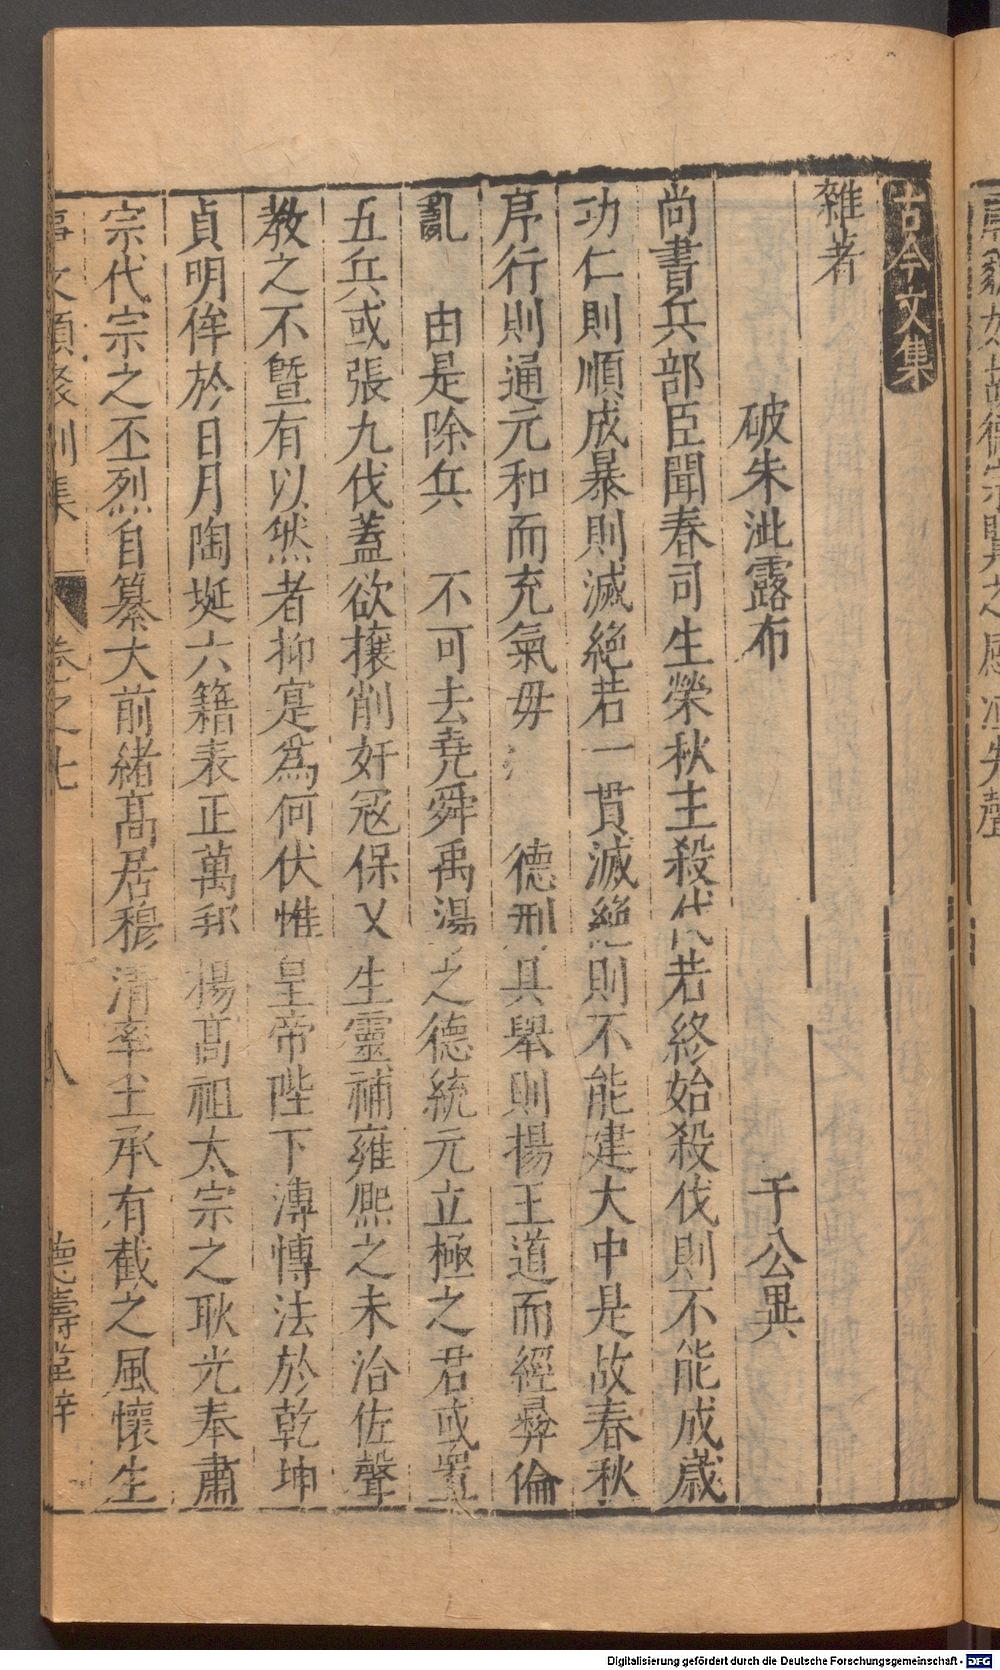 古今文集
雜著
破朱泚露布 于公異
尚書兵部臣聞春司生榮秋主殺伐若終始殺伐則不能成歲
功仁則順成暴則滅絕若一貫滅絕則不能建大中是故春秋
序行則通元和而充氣毋 德刑具舉則揚王道而經彝倫
亂 由是除兵 不可去堯舜禹湯之德統元立極之君或置
五兵或張九伐蓋欲攘削奸寇保乂生靈補雍熙之未洽佐聲
教之不曁有以然者抑寔爲何伏惟皇帝陛下溥慱法於乾坤
貞明侔於日月陶埏六籍表正萬邦揚髙祖太宗之耿光奉肅
宗代宗之丕烈自纂大前緒髙居穆清率土承有截之風懷生
事文類聚別集 卷之七 八 德壽堂梓
Digitalisierung gefördert durch die Deutsche Forschungsgemeinschaft - DFG